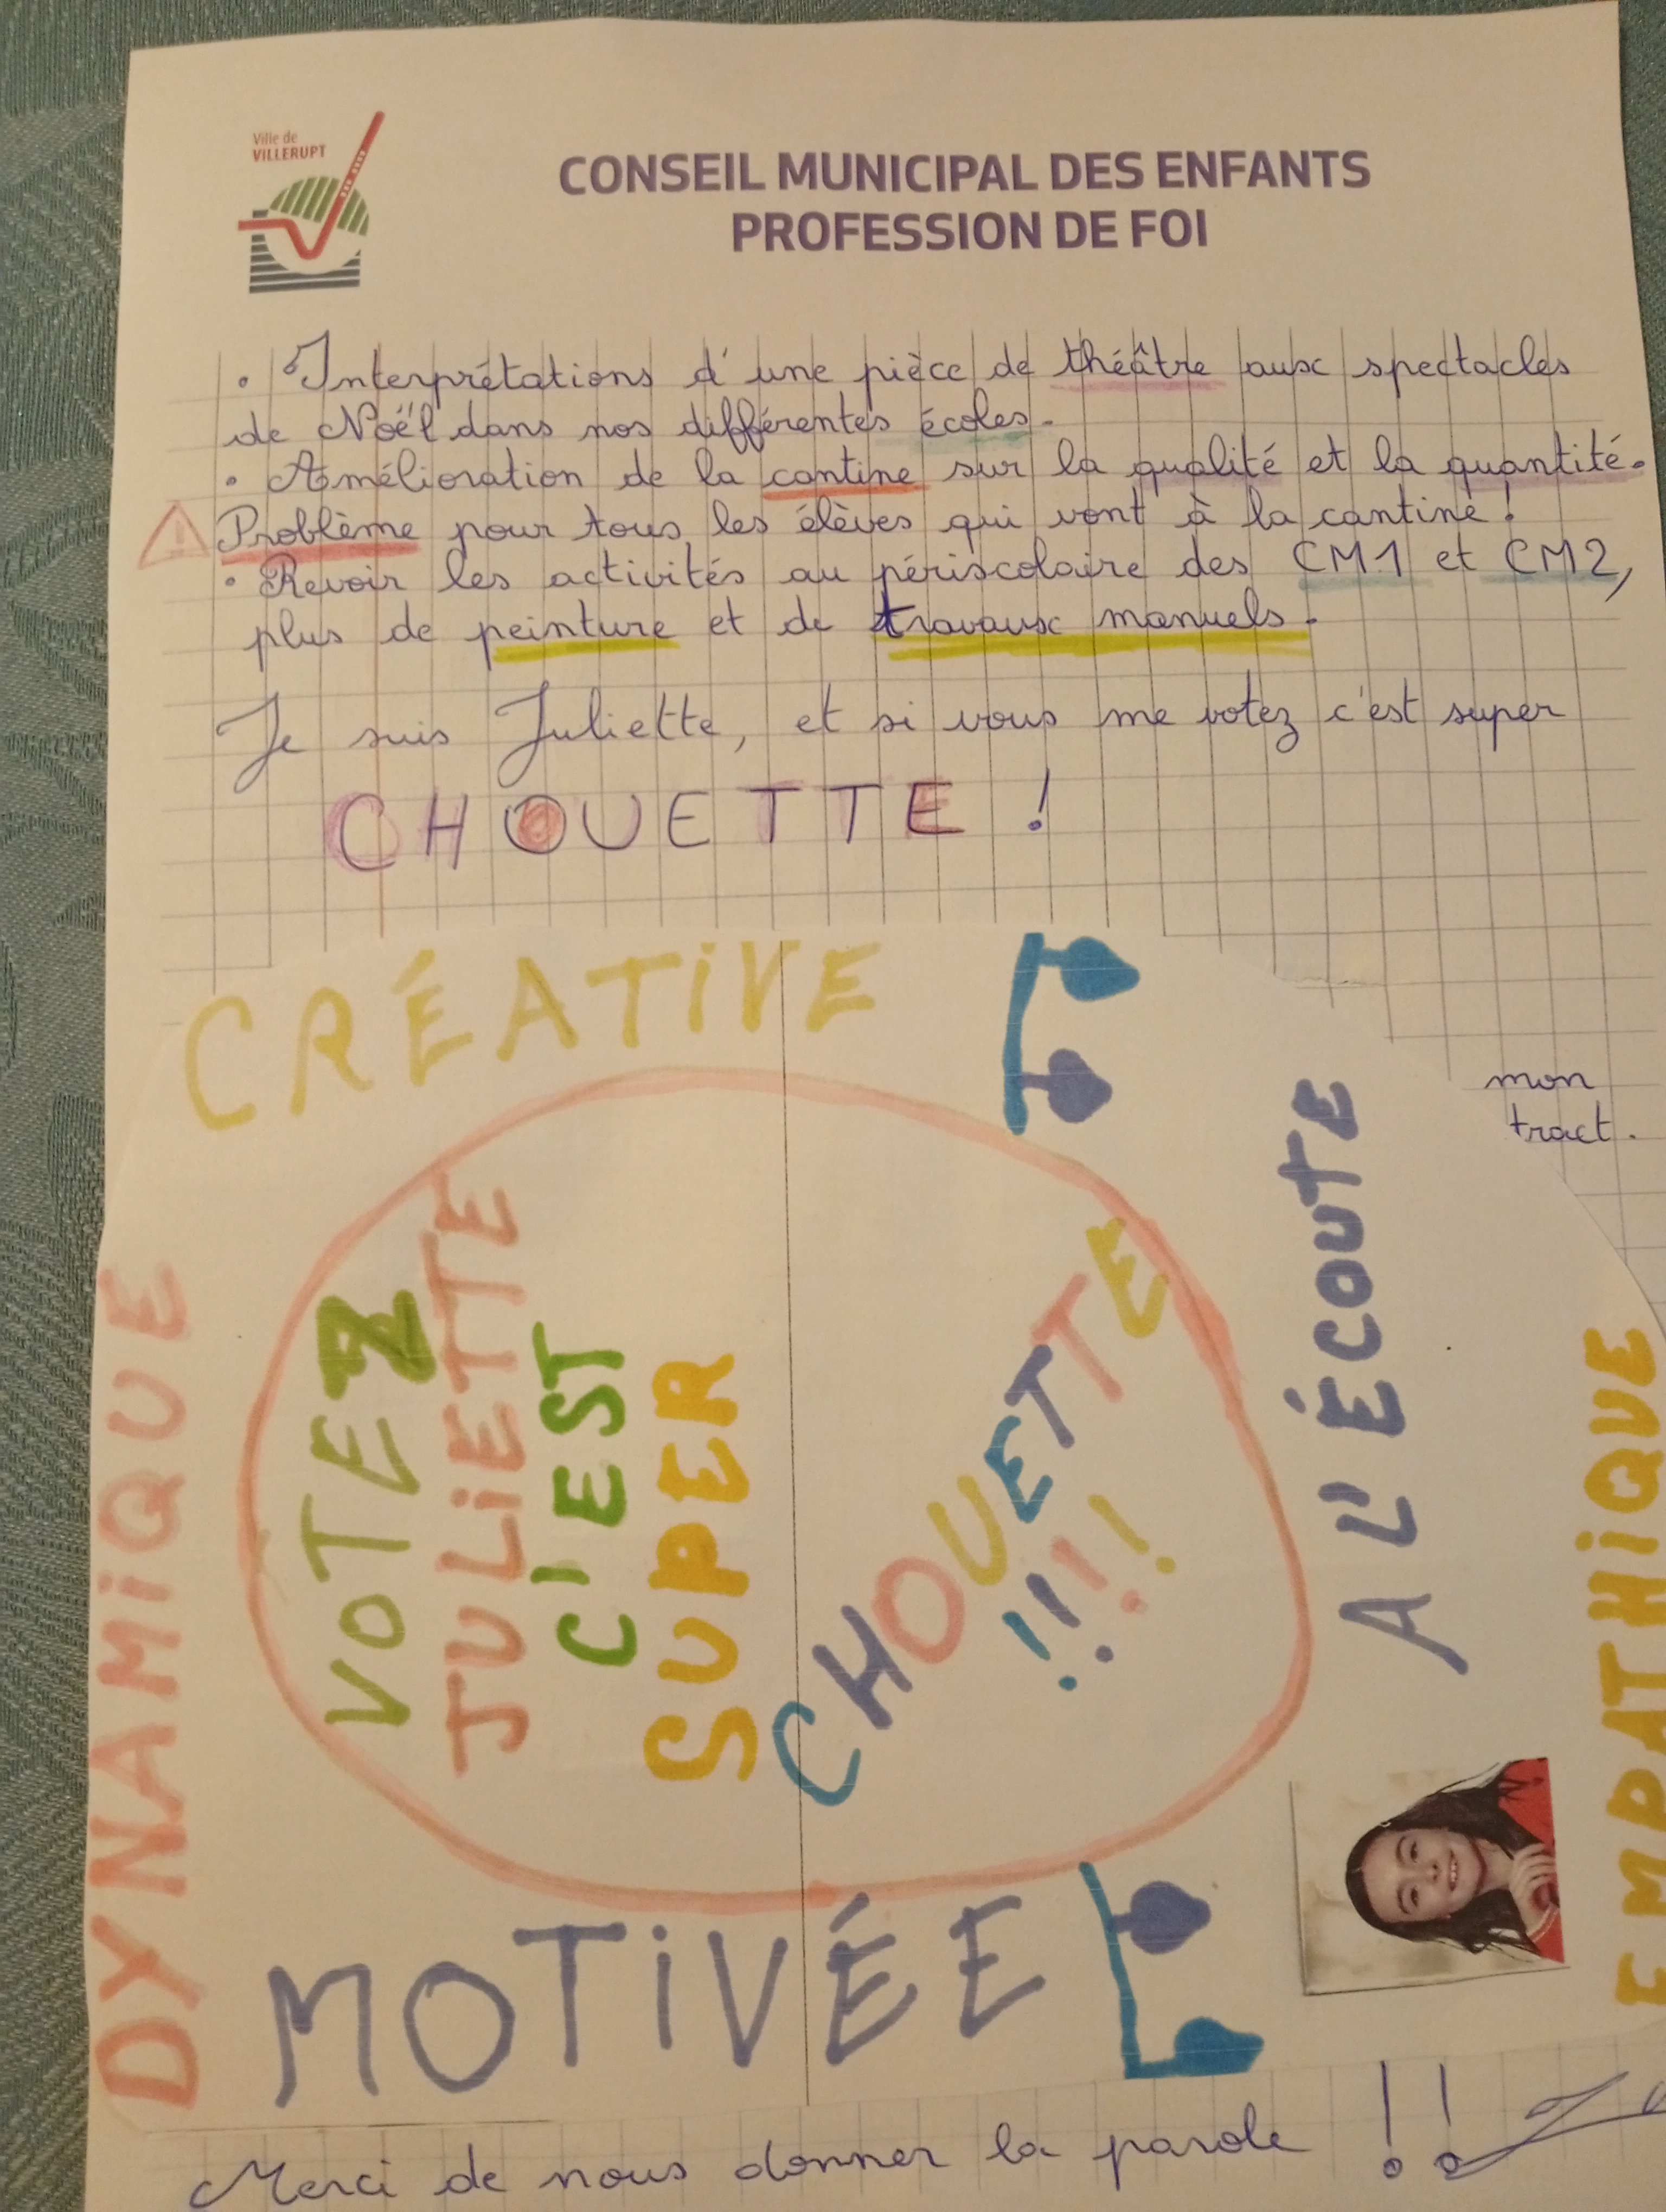 Ville de
VILLERUPT
CONSEIL MUNICIPAL DES ENFANTS
PROFESSION DE FOI
• Interprétations d'une pièce de théâtre aux spectacles
de Noël dans nos différentes écoles.
• Amélioration de la cantine sur la qualité et la quantité.
Problème pour tous les élèves qui vont à la cantine !
• Revoir les activités au périscolaire des CM1 et CM2,
plus de peinture et de travaux manuels.
Je suis Juliette, et si vous me votez c'est super
CHOUETTE !
mon
tract.
CRÉATiVE
DYNAMiQUE
VOTEZ
JULiETTE
C'EST
SUPER
CHOUETTE
!!!!
A L'ÉCOUTE
EMPATHiQUE
MOTiVÉE
Merci de nous donner la parole !!